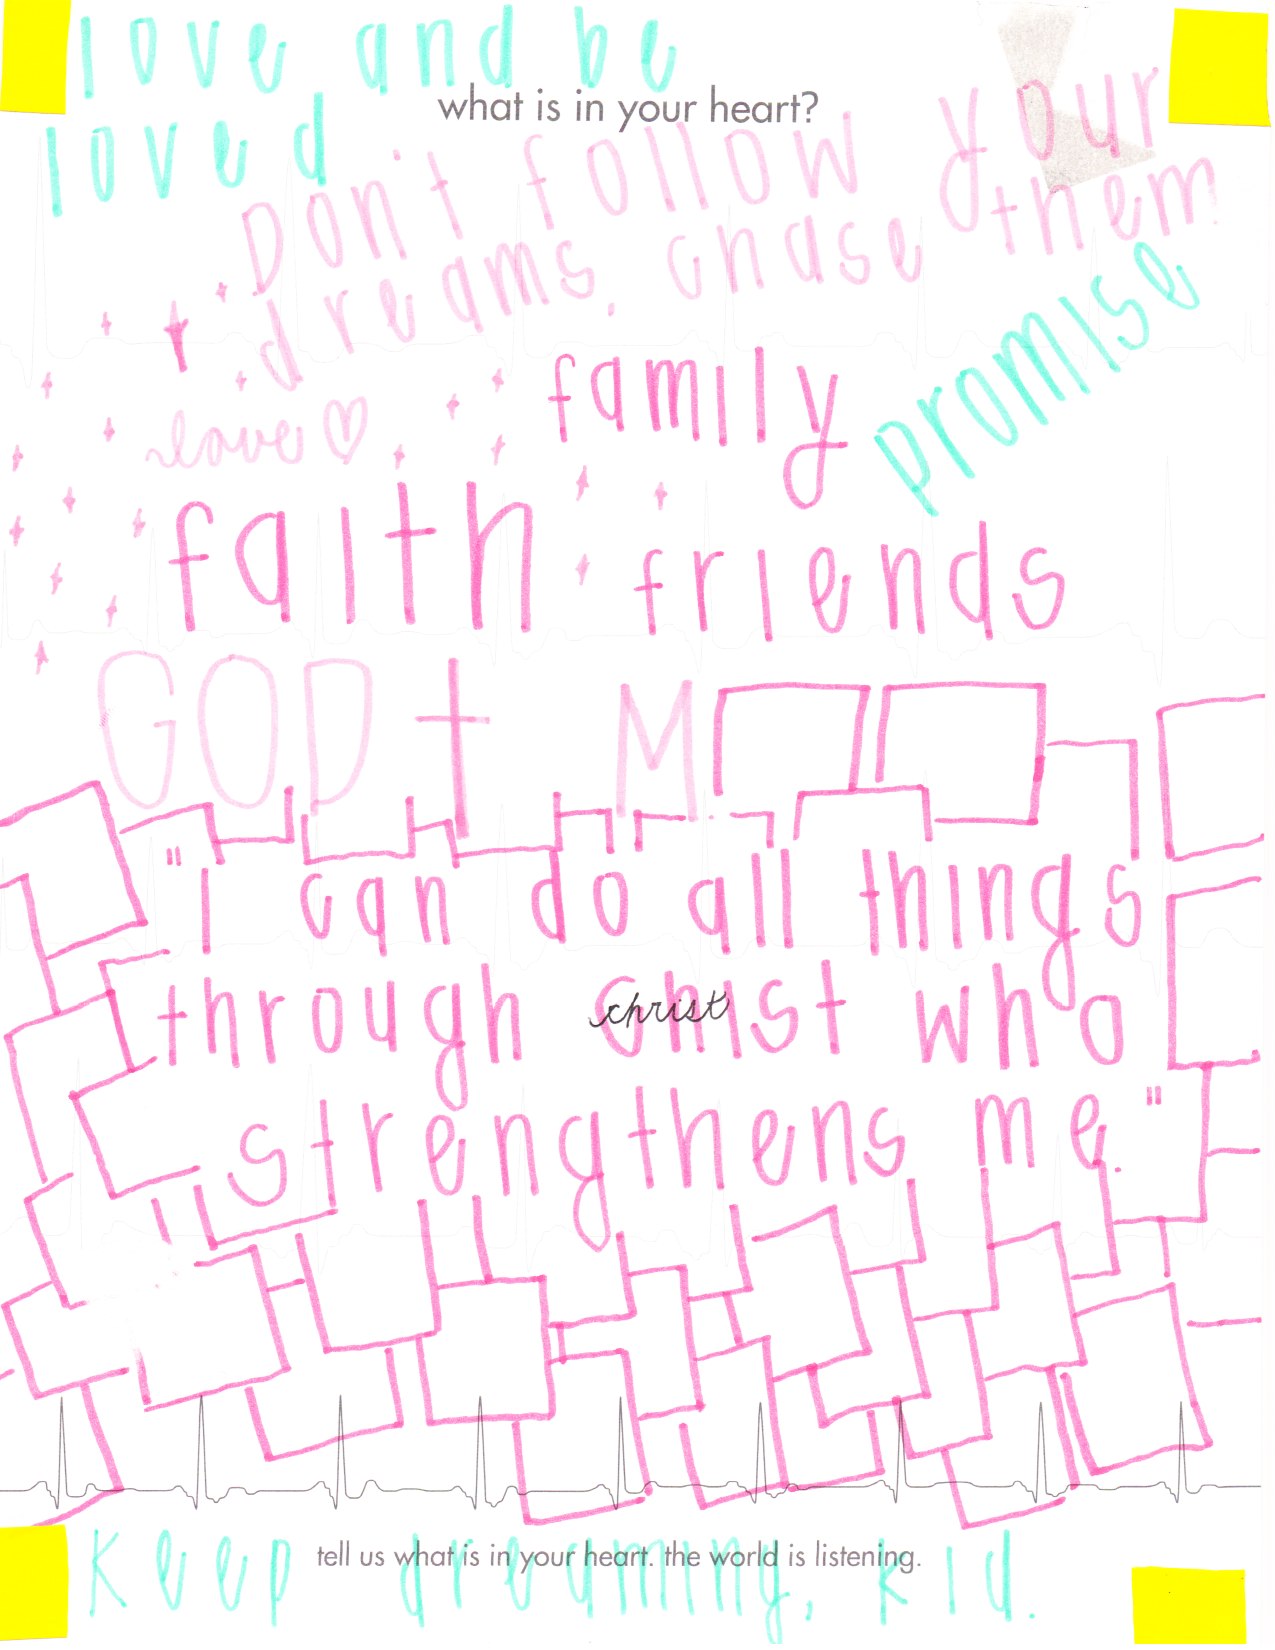 love and be
what is in your heart?
loved
Don't follow your
dreams, chase them
promise
family
love
faith
friends
GOD M
"I can do all things
through Christ who
christ
strengthens me."
tell us what is in your heart. the world is listening.
Keep dreaming, kid.